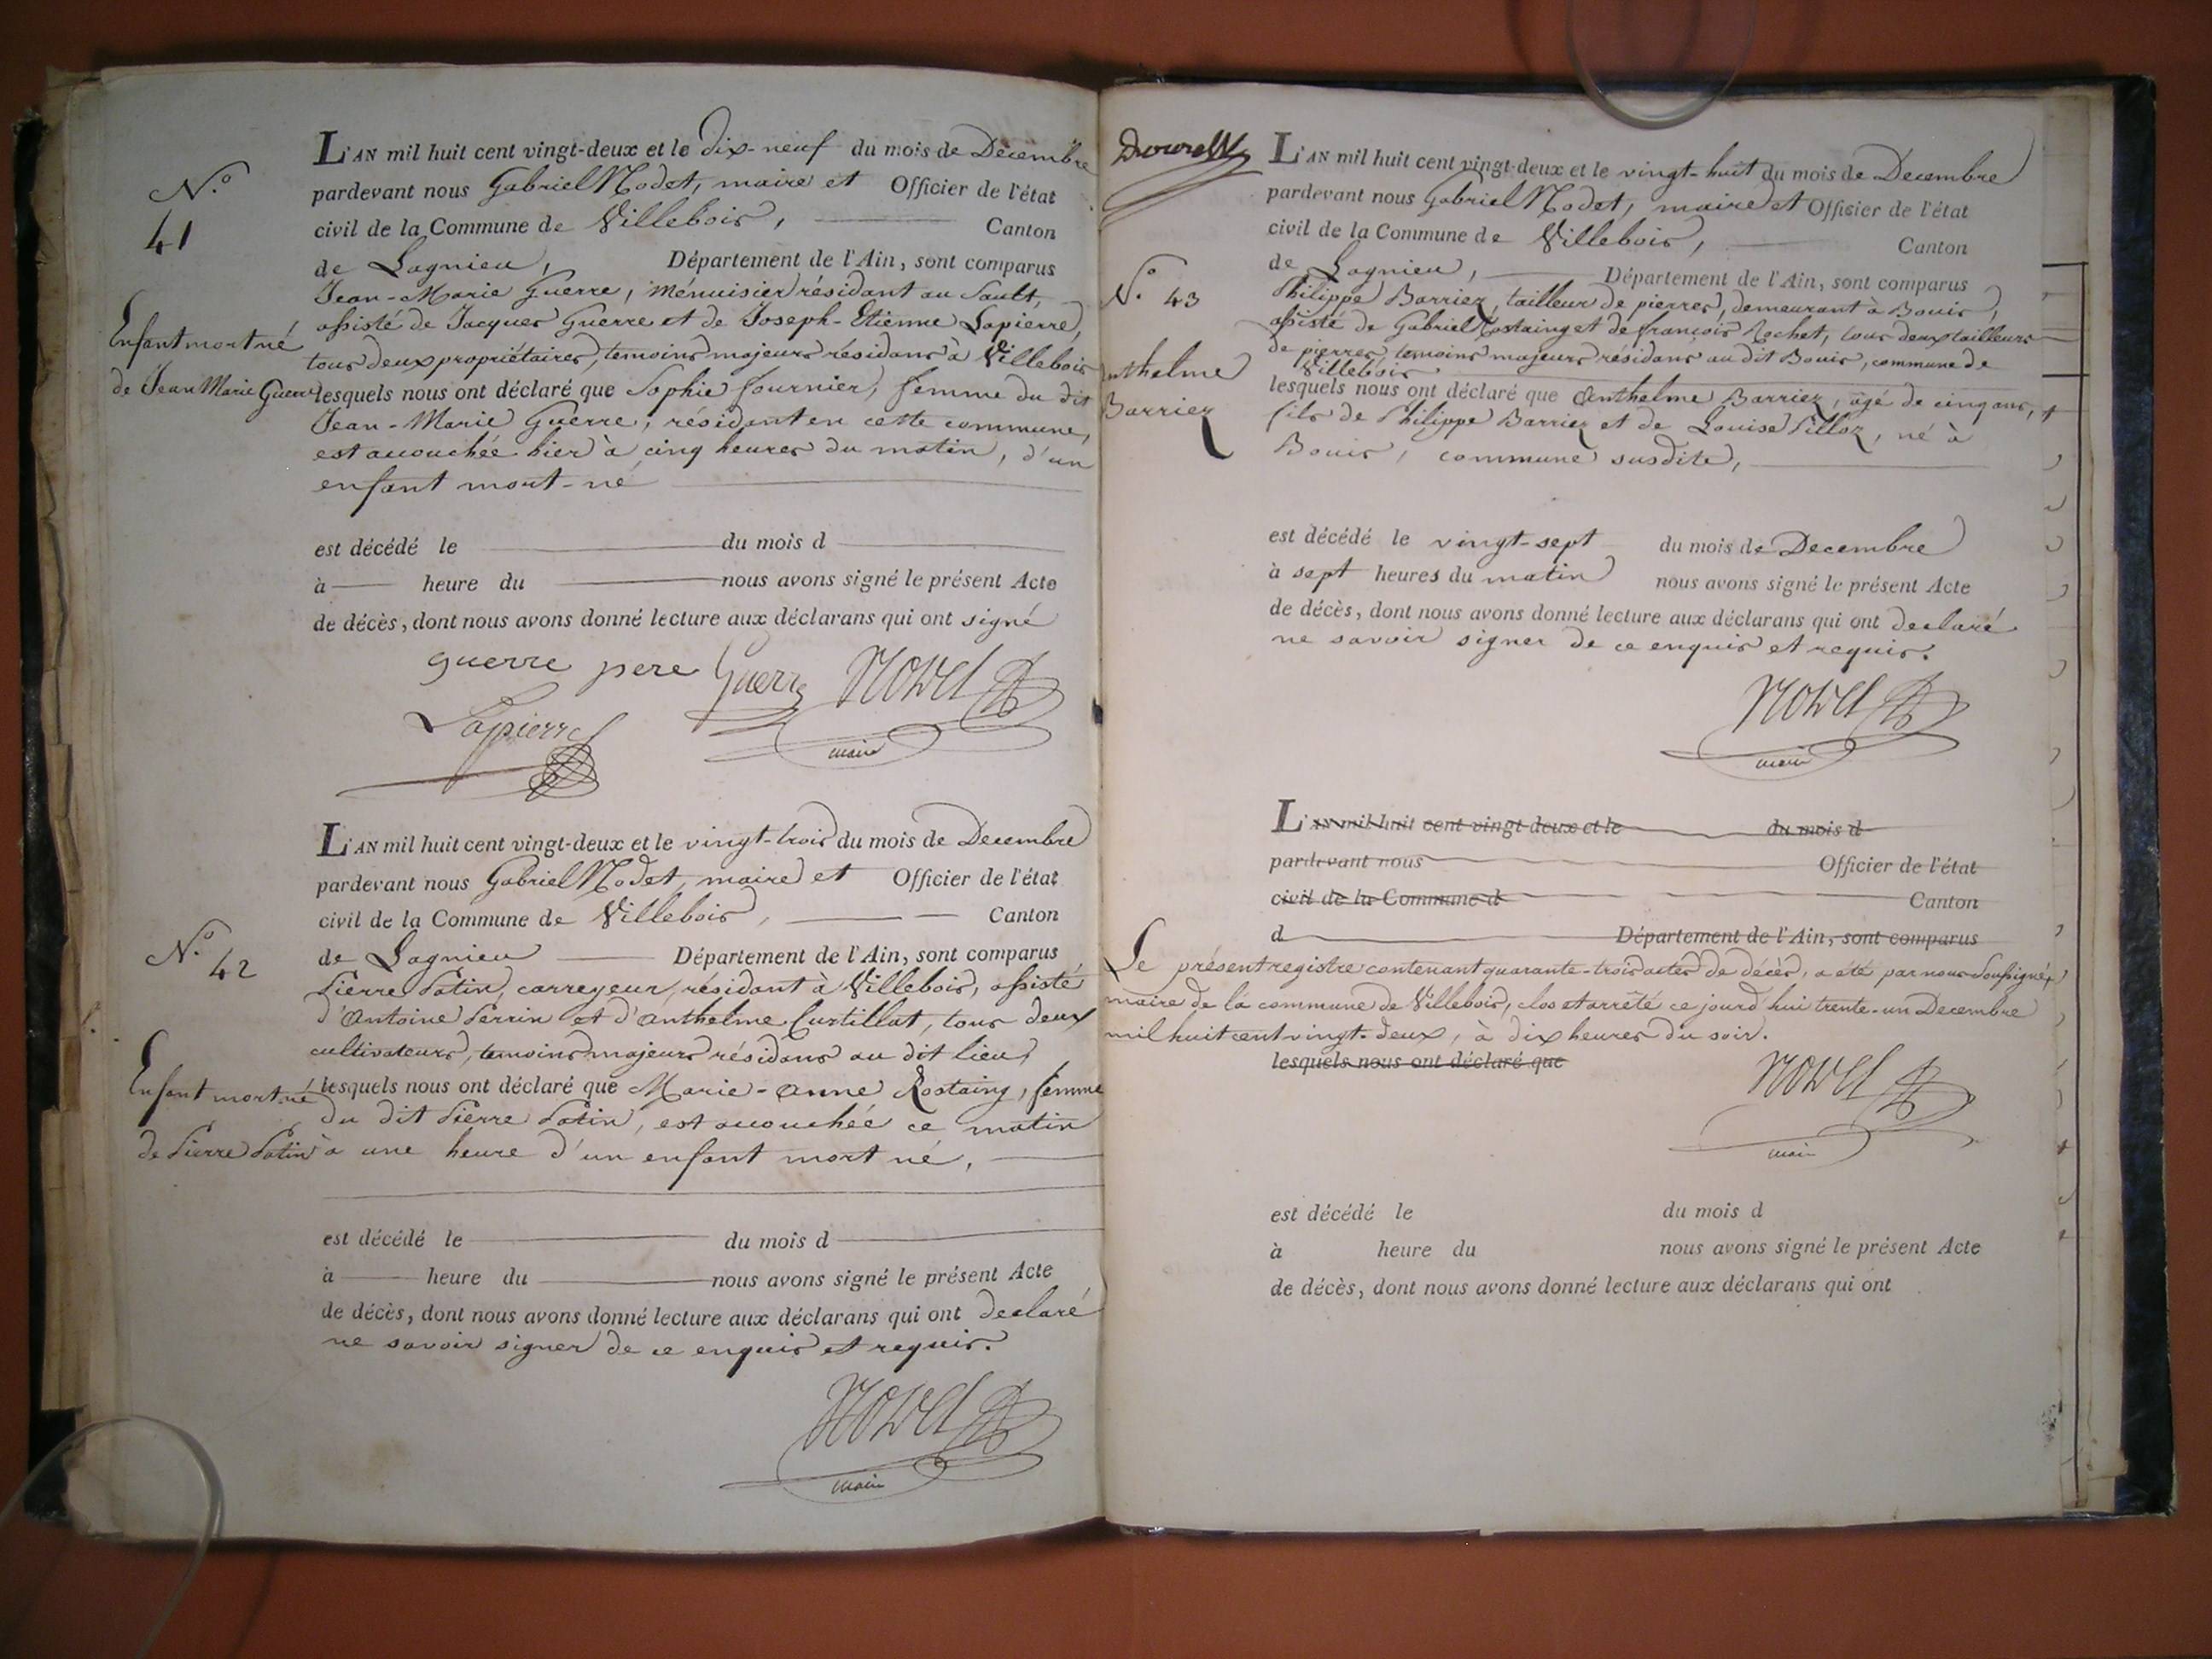 N.o
41
L'AN mil huit cent vingt-deux et le dix-neuf du mois de Décembre
pardevant nous Gabriel Modet, maire et Officier de l'état
civil de la Commune de Villebois, Canton
de Lagnieu, Département de l'Ain, sont comparus
Jean-Marie Guerre, Ménuisier résidant au Sault,
assisté de Jacques Guerre et de Joseph-Etienne Lapierre,
tous deux propriétaires, temoins majeurs résidans à Villebois
lesquels nous ont déclaré que Sophie fournier, femme du dit
Jean-Marie Guerre, résidant en cette commune,
est accouchée hier à cinq heures du matin, d'un
enfant mort-né
Enfant mort né
de Jean Marie Guerre
est décédé le du mois d
à heure du nous avons signé le présent Acte
de décès, dont nous avons donné lecture aux déclarans qui ont signé
guerre pere Guerre Modet
Lapierre
maire
N.o 42
L'AN mil huit cent vingt-deux et le vingt-trois du mois de Decembre
pardevant nous Gabriel Modet, maire et Officier de l'état
civil de la Commune de Villebois, Canton
de Lagnieu Département de l'Ain, sont comparus
Pierre Patin, carreyeur, résidant à Villebois, assisté
d'Antoine Perrin et d'Anthelme Curtillat, tous deux
cultivateurs, temoins majeurs résidans au dit lieu,
lesquels nous ont déclaré que Marie-Anne Rostaing, femme
du dit Pierre Patin, est accouchée ce matin
à une heure d'un enfant mort né,
Enfant mort-né
de Pierre Patin
est décédé le du mois d
à heure du nous avons signé le présent Acte
de décès, dont nous avons donné lecture aux déclarans qui ont declaré
ne savoir signer de ce enquis et requis.
Modet
maire
N.o 43
Anthelme
Barriez
L'AN mil huit cent vingt-deux et le vingt-huit du mois de Decembre
pardevant nous Gabriel Modet, maire et Officier de l'état
civil de la Commune de Villebois, Canton
de Lagnieu, Département de l'Ain, sont comparus
Philippe Barriez, tailleur de pierres, demeurant à Bouis,
assisté de Gabriel Rostaing et de françois Rochet, tous deux tailleurs
de pierres, temoins majeurs résidans au dit Bouis, commune de
Villebois
lesquels nous ont déclaré que Anthelme Barriez, âgé de cinq ans,
fils de Philippe Barriez et de Louise Pilloz, né à
Bouis, commune susdite,
est décédé le vingt-sept du mois de Decembre
à sept heures du matin nous avons signé le présent Acte
de décès, dont nous avons donné lecture aux déclarans qui ont declaré
ne savoir signer de ce enquis et requis.
Modet
maire
L'AN mil huit cent vingt-deux et le du mois d
pardevant nous Officier de l'état
civil de la Commune d Canton
d Département de l'Ain, sont comparus
Le présent registre contenant quarante-trois actes de décès, a été par nous soussigné,
maire de la commune de Villebois, clos et arrêté ce jourd'hui trente-un Decembre
mil huit cent vingt-deux, à dix heures du soir.
lesquels nous ont déclaré que
Modet
maire
est décédé le du mois d
à heure du nous avons signé le présent Acte
de décès, dont nous avons donné lecture aux déclarans qui ont